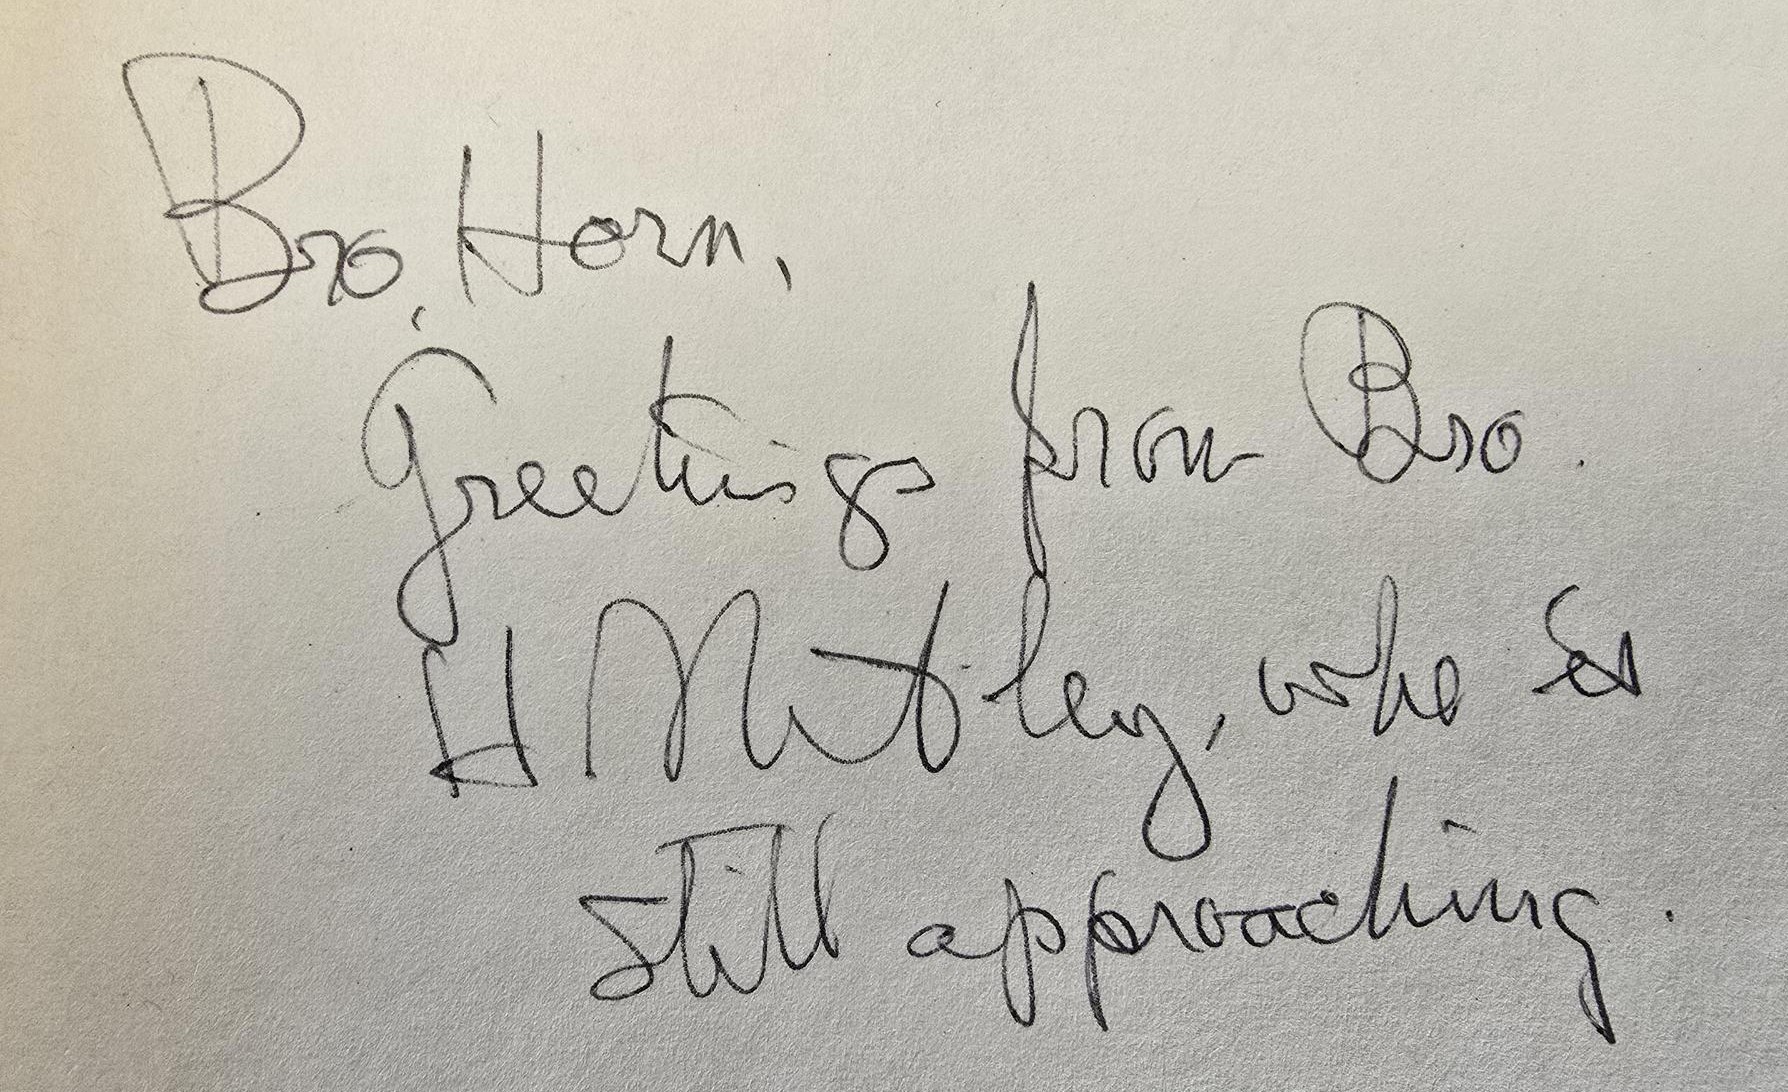 Bro. Horn,
Greetings from Bro.
H Motley, who is
still approaching.